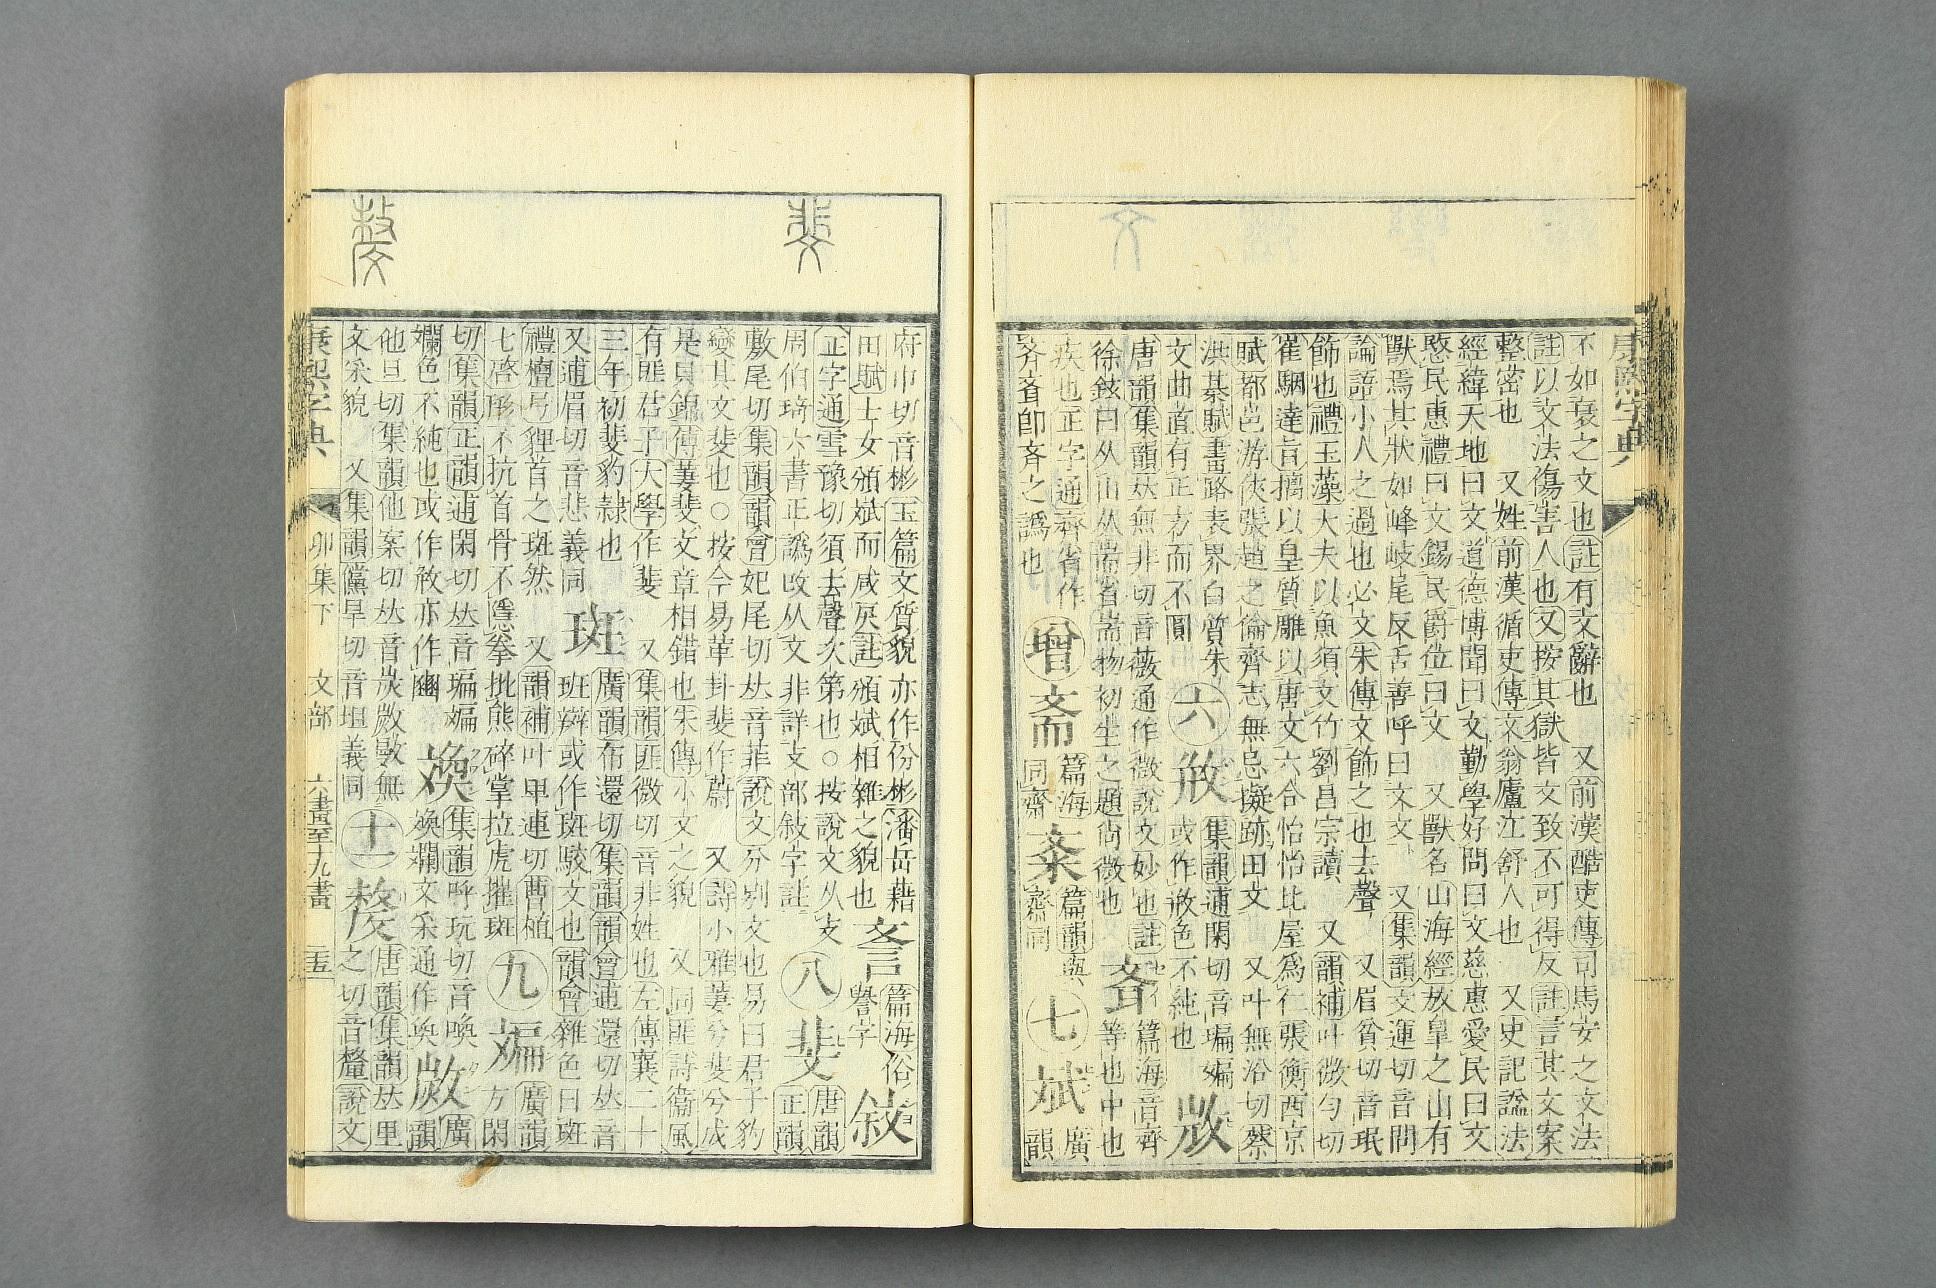 康熙字典
不如衰之文也註有文辭也 又前漢酷吏傳司馬安之文法
註以文法傷害人也又按其獄皆文致不可得反註言其文案
整密也 又姓前漢循吏傳文翁廬江舒人也 又史記諡法
經緯天地曰文道德博聞曰文勤學好問曰文慈惠愛民曰文
愍民惠禮曰文錫民爵位曰文 又獸名山海經放皐之山有
獸焉其狀如峰岐尾反舌善呼曰文文 又集韻文運切音問
論語小人之過也必文朱傳文飾之也去聲 又眉貧切音珉
飾也禮玉藻大夫以魚須文竹劉昌宗讀 又韻補叶微勻切
崔駰達旨摛以皇質雕以唐文六合怡怡比屋爲仁張衡西京
賦都邑游俠張趙之倫齊志無忌擬跡田文 又叶無沿切蔡
洪棊賦畫路表界白質朱
文曲直有正方而不圓
六 㪰
集韻逋閑切音㻞斒
或作㪵色不純也
㪱
唐韻集韻𠀤無非切音薇通作微說文妙也註
徐鉉曰从山从耑省耑物初生之題尚微也
斊
篇海音齊
等也中也
疾也正字通齊省作
斉斊卽斉之譌也
增 斋
篇海
同齋
斎
篇韻與
齋同
七 斌
廣
韻
文
斐
嫠
府巾切音彬玉篇文質貌亦作份彬潘岳藉
田賦士女頒斌而咸戾註頒斌相雜之貌也
㪲
篇海俗
譽字
敍
正字通雪豫切須去聲次第也○按說文从攴
周伯琦六書正譌改从文非詳攴部敍字註
八 斐
唐韻
正韻
敷尾切集韻韻會妃尾切𠀤音菲說文分別文也易曰君子豹
變其文斐也○按今易革卦斐作蔚 又詩小雅萋兮斐兮成
是貝錦傳萋斐文章相錯也朱傳小文之貌 又同匪詩衞風
有匪君子大學作斐 又集韻匪微切音非姓也左傳襄二十
三年初斐豹隸也
又逋眉切音悲義同
斑
廣韻布還切集韻韻會逋還切𠀤音
班辬或作斑駁文也韻會雜色曰斑
禮檀弓貍首之斑然 又韻補叶甲連切曹植
七啓形不抗首骨不隱拳批熊碎掌拉虎摧斑
九 斒
廣韻
方閑
切集韻正韻逋閑切𠀤音㻞斒
斕色不純也或作㪵亦作豳
㬇
集韻呼玩切音喚
㬇斕文采通作奐
㪴
廣
韻
他旦切集韻他案切𠀤音炭㪴㪵無
文采貌 又集韻儻旱切音坦義同
十一 斄
唐韻集韻𠀤里
之切音釐說文
康熙字典 卯集下 文部 六畫至十九畫 二五